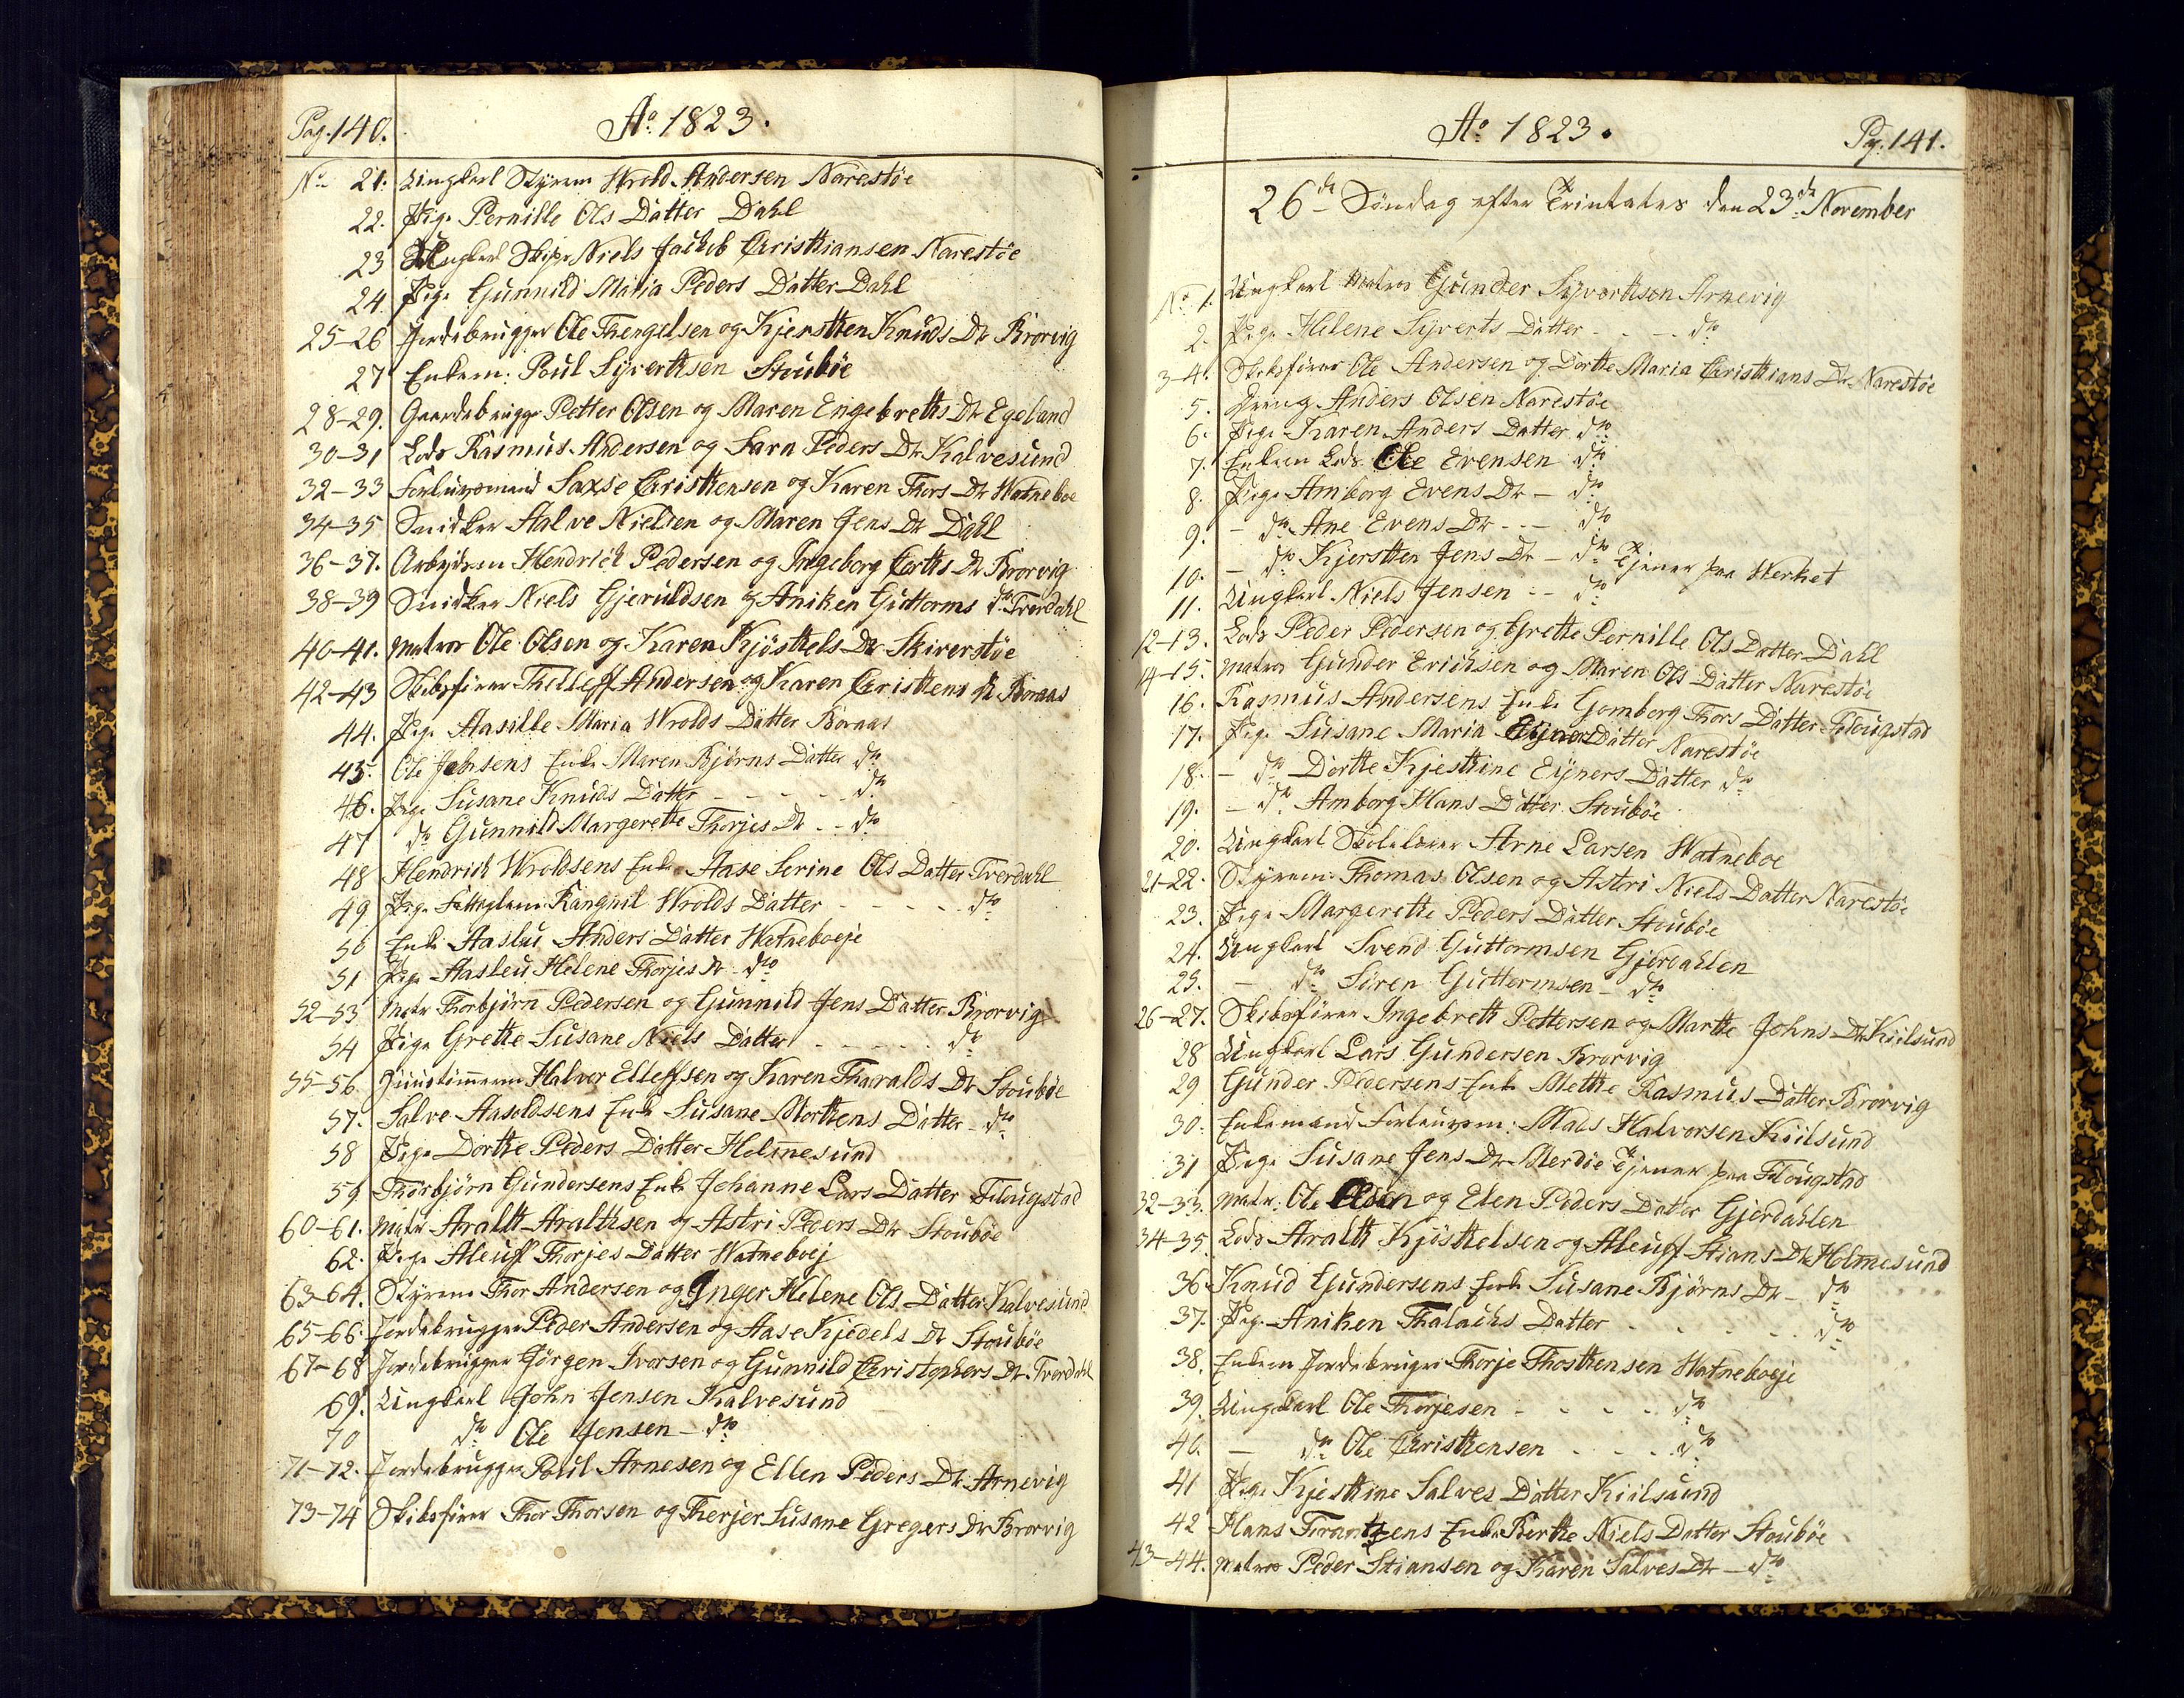 Pag. 140.
Ao. 1823.
No. 21. Ungkarl Styrm Wrold Andersen Narestöe
22. Pige Pernille Ols Datter Dahl
23 Ungkarl Skips Niels Jackob Christhiansen Narestöe
24 Pige Gunnild Maria Peders Datter Dahl
25-26 Jordebrugger Ole Thengelsen og Kjersthen Knuds Dr Brorvig
27 Enkem: Poul Syverthsen Stouböe
28-29. Gaardebrugger Petter Olsen og Maren Engebreths Dr Egeland
30-31 Lods Rasmus Andersen og Sara Peders Dr Kalvesund
32-33 Forlovsmand Saxse Christhensen og Karen Thors Dr Watneboe
34-35 Snidker Aalve Nielsen og Maren Jens Dr Dahl
36-37. Arbejdsm Hendrick Pedersen og Ingeborg Corths Dr Brorvig
38-39 Snidker Niels Gjeruldsen og Aniken Guttorms Dr Tverdahl
40-41. Matros Ole Olsen og Karen Kjösthels Dr Skiverstöe
42-43 Skibsförer Thelleff Andersen og Karen Christhens Dr Boraas
44. Pige Aasille Maria Wrolds Datter Boraas
45. Ole Jensens Enke Maren Björns Datter do
46. Pige Susane Knuds Datter - - - - do
47 do Gunnild Margerethe Thorjes Dr - - do
48 Hendrich Wroldsens Enke Aase Serine Ols Datter Tverdahl
49 Pige Rangnil Wrolds Datter - - - - - do
50 Enke Aaslau Anders Datter Watneboeje
51 Pige Aasleu Helene Thorjes Dr - do
52-53 Matr Thorbjörn Pedersen og Gunnild Jens Datter Brorvig
54 Pige Grethe Susane Niels Datter - - - - - do
55-56 Huustömmerm Halvor Elleffsen og Karen Tharalds Dr Stouböe
57. Salve Aasoldsens Enke Susane Morthens Datter - do
58 Pige Dorthe Peders Datter Holmesund
59 Thorbjörn Gundersens Enke Johanne Lars Datter Flougstad
60-61. Matr Aralth Aralthsen og Astri Peders Dr Stouböe
62. Pige Aleuff Thorjes Datter Watneboej
63-64. Styrm Thor Andersen og Inger Helene Ols Datter Kalvesund
65-66. Jordebrugger Peder Andersen og Aase Kjedels Dr Stouböe
67-68 Jordebrugger Jörgen Ivorsen og Gunnild Christophers Dr Tverdahl
69. Ungkarl John Jensen Kalvesund
70 do Ole Jensen - do
71-72. Jordebrugger Poul Arnesen og Ellen Peders Dr Arnevig
73-74 Skibsförer Thor Thorsen og Therjer Susane Gregers Dr Brorvig
Ao 1823.
Pag. 141.
26de Söndag efter Trinitates den 23de November
No. 1. Ungkarl Matros Gunder Syverthsen Arnevig
2. Pige Helene Syverts Datter - - - do
3-4. Skibsförer Ole Andersen og Dorthe Maria Christhians Dr Narestöe
5. Dreng Anders Olsen Narestöe
6. Pige Karen Anders Datter do
7. Enkem Lods Ole Evensen do
8. Pige Amborg Evens Dr - do
9. - do Ane Evens Dr - - - do
10. - do Kjersthen Jens Dr - do Tjener paa Werket
11. Ungkarl Niels Jensen - - do
12-13. Lods Peder Pedersen og Grethe Pernille Ols Datter Dahl
14-15. Matros Gunder Erichsen og Maren Ols Datter Narestöe
16. Rasmus Andersens Enke Gomborg Thors Datter Flougstad
17. Pige Susane Maria Eyners Datter Narestöe
18. - do Dorthe Kjesthine Eyners Datter do
19. - do Amborg Hans Datter Stouböe
20. Ungkarl Skolelærer Arne Larsen Watneboe
21-22. Styrm: Thomas Olsen og Astri Niels Datter Narestöe
23. Pige Margerethe Peders Datter Stouböe
24. Ungkarl Svend Guttormsen Gjerdahlen
25. - do Sören Guttormsen - do
26-27. Skibsförer Ingebreth Pettersen og Marthe Johns Dr Kiilsund
28 Ungkarl Lars Gundersen Brorvig
29 Gunder Pedersens Enke Methe Rasmus Datter Brorvig
30. Enkemand Forlovsm: Mads Halvorsen Kiilsund
31 Pige Susane Jens Dr Merdöe Tjener paa Flougstad
32-33. Matr: Ole Olsen og Elen Peders Datter Gjerdahlen
34-35. Lods Aralth Kjösthelsen og Aleuff Stians Dr Holmesund
36. Knud Gundersens Enke Susane Björns Dr - do
37. Pige Aniken Thalacks Datter - - - - - do
38. Enkem Jordebruger Thorje Thosthensen Watneboeje
39. Ungkarl Ole Thorjesen - - - - do
40. - do Ole Christhensen - - - - do
41 Pige Kjesthine Salves Datter Kiilsund
42 Hans Frantzens Enke Berthe Niels Datter Stouböe
43-44. Matros Peder Stiansen og Karen Salves Dr - do